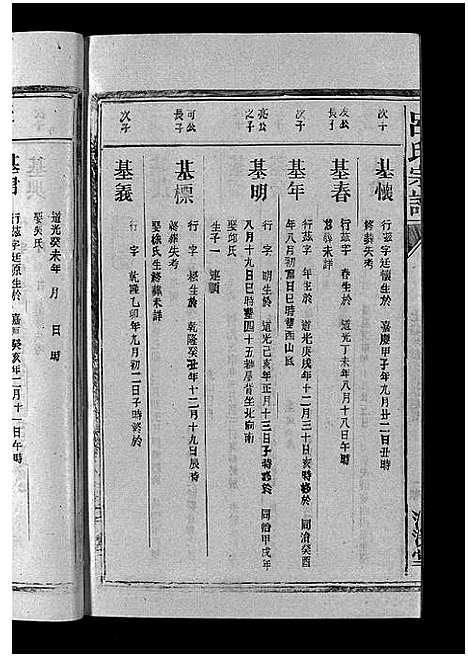 呂氏宗譜
次子
基懷
行茲字廷懷生於 嘉慶甲子年九月廿二日丑時
終葬失考
友公
長子
基春
行茲字 春生於 道光丁未年八月十八日午時
終葬未詳
次子
基年
行茲字 年生於 道光庚戌年十二月三十日亥時終於 同治癸酉
年八月初 日巳時葬西山
亮公
之子
基明
行 字 明生於 道光己亥年正月十三日子時終於 同治甲戌年
八月十九日巳時葬四十五都 坐北向南
娶邱氏
生子一 連順
可公
長子
基標
行 字 標生於 乾隆癸丑年十二月十九日辰時
終葬失考
娶徐氏生終葬未詳
次子
基義
行 字 乾隆乙卯年九月初二日子時終於
道光癸未年 月 日時
娶吳氏
行茲字廷原生於 嘉 癸亥年二月十一日午時